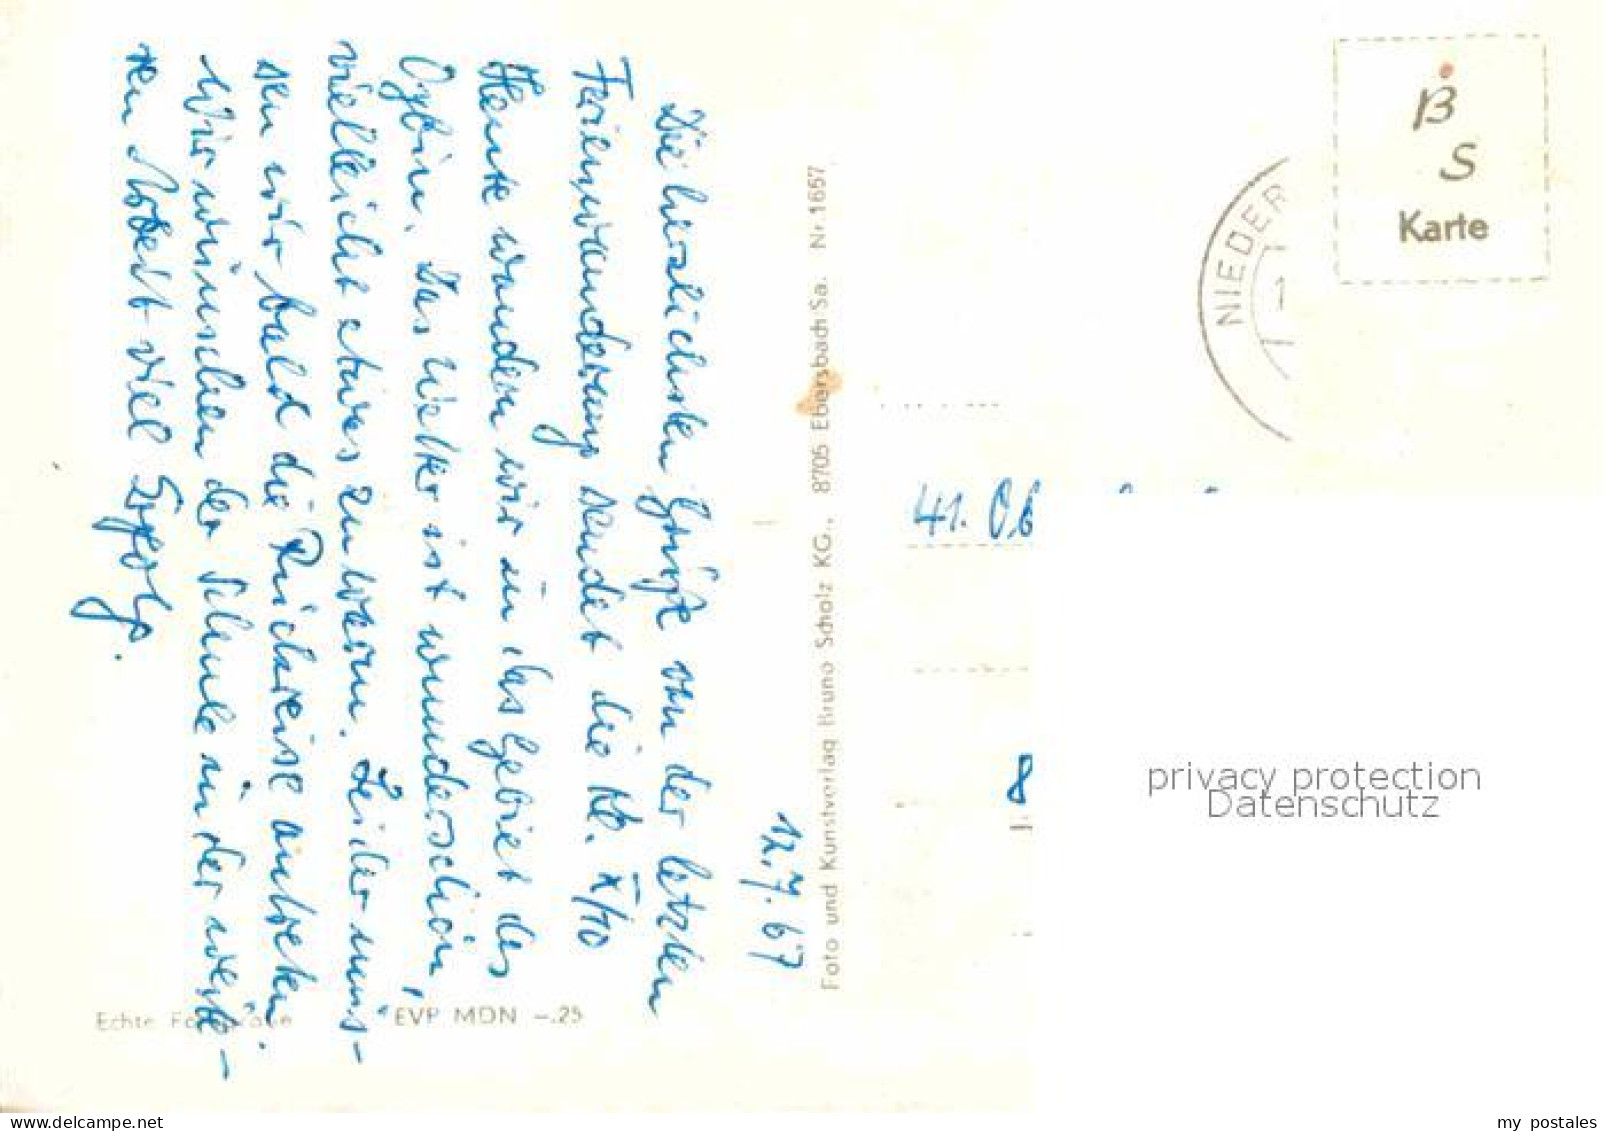 12.7.67
Die herzlichsten Grüße von der letzten
Ferienwanderung sendet die Kl. X/10
Heute wandern wir in das Gebiet des
Oybin. Das Wetter ist wunderschön,
vielleicht etwas zu warm. Leider müs-
sen wir bald die Rückreise antreten.
Wir wünschen der Schule in der weite-
ren Arbeit viel Erfolg.
Echte
EVP MDN -.25
Foto und Kunstverlag Bruno Scholz KG., 8705 Ebersbach Sa. Nr. 1657
B
S
Karte
NIEDER
41. Ob
privacy protection
Datenschutz
delcampe.net
my postales